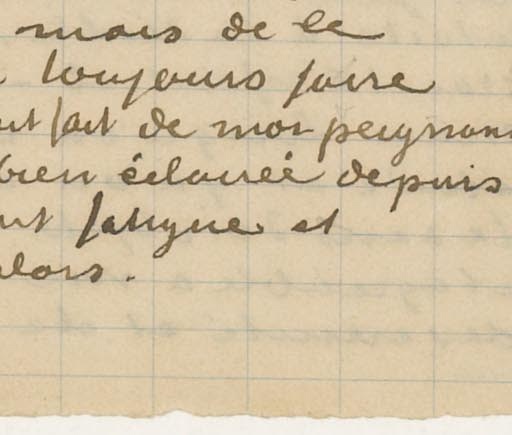 mois de le
toujours faire
fait de moi peignant
bien éclairée depuis
fatigue et
alors.